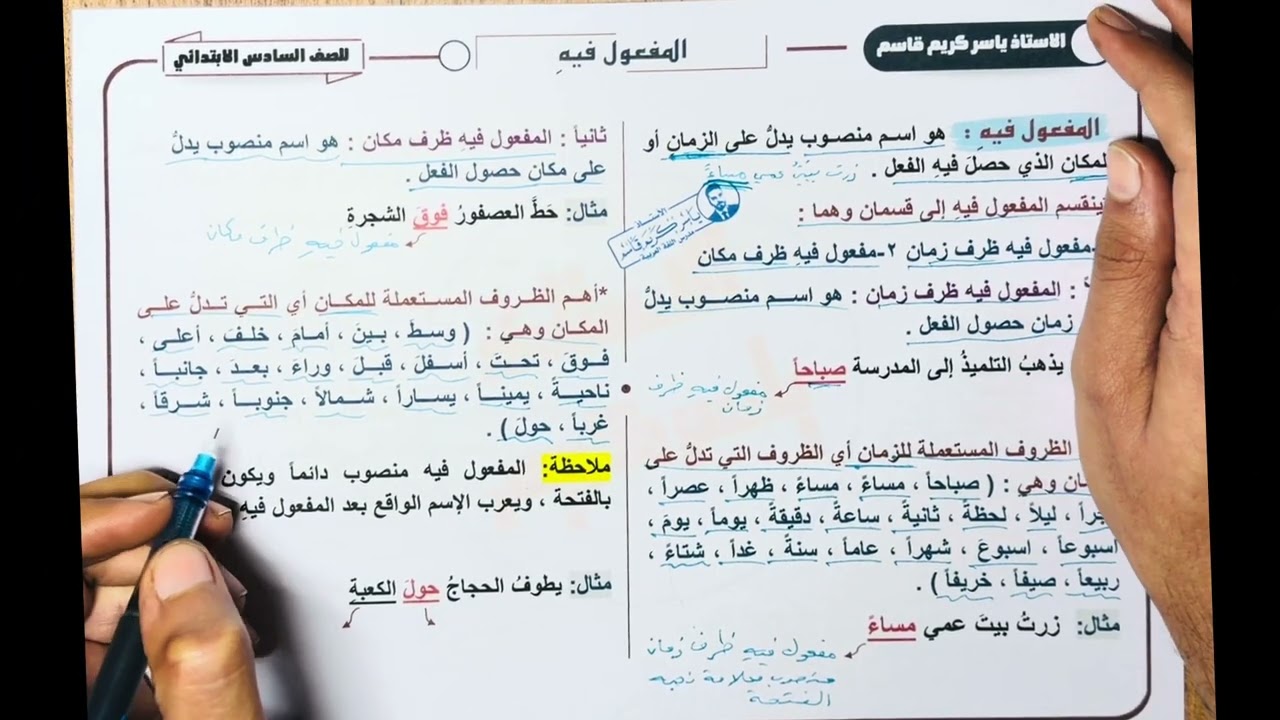 الاستاذ ياسر كريم قاسم
المفعول فيهِ
للصف السادس الابتدائي
المفعول فيهِ : هو اسم منصوب يدلُّ على الزمان أو
لمكان الذي حصلَ فيهِ الفعل .
زرت بيتَ عمي مساءً
ينقسم المفعول فيهِ إلى قسمان وهما :
-مفعول فيه ظرف زمان ٢-مفعول فيهِ ظرف مكان
: المفعول فيه ظرف زمان : هو اسم منصوب يدلُّ
زمان حصول الفعل .
يذهبُ التلميذُ إلى المدرسة صباحاً
مفعول فيه ظرف
زمان
الظروف المستعملة للزمان أي الظروف التي تدلُّ على
ان وهي : ( صباحاً ، مساءً ، مساءً ، ظهراً ، عصراً ،
جراً ، ليلاً ، لحظةً ، ثانيةً ، ساعةً ، دقيقةً ، يوماً ، يومَ ،
اسبوعاً ، اسبوعَ ، شهراً ، عاماً ، سنةً ، غداً ، شتاءً ،
ربيعاً ، صيفاً ، خريفاً ) .
مثال: زرتُ بيتَ عمي مساءً
مفعول فيه ظرف زمان
منصوب وعلامة نصبه
الفتحة
ثانياً : المفعول فيهِ ظرف مكان : هو اسم منصوب يدلُّ
على مكان حصول الفعل .
مثال: حَطَّ العصفورُ فوقَ الشجرةِ
مفعول فيه ظرف مكان
*أهم الظروف المستعملة للمكان أي التي تدلُّ على
المكان وهي : ( وسطَ ، بينَ ، أمامَ ، خلفَ ، أعلى ،
فوقَ ، تحتَ ، أسفلَ ، قبلَ ، وراءَ ، بعدَ ، جانباً ،
ناحيةً ، يميناً ، يساراً ، شمالاً ، جنوباً ، شرقاً ،
غرباً ، حولَ ) .
ملاحظة: المفعول فيه منصوب دائماً ويكون
بالفتحة ، ويعرب الإسم الواقع بعد المفعول فيهِ
مثال: يطوفُ الحجاجُ حولَ الكعبةِ
الاستاذ
ياسر كريم قاسم
مدرس اللغة العربية